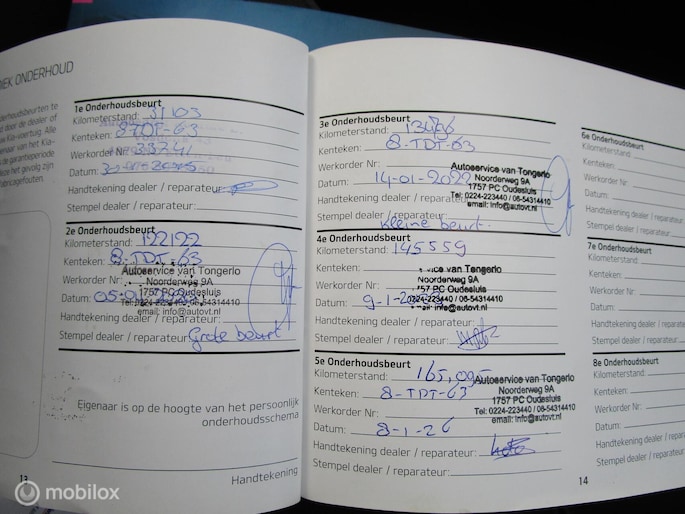 IEK ONDERHOUD
derhoudsbeurten te
d door de dealer of
Kia-voertuig. Alle
naar van het Kia-
de garantieperiode
ice het gevolg zijn
abricagefouten.
1e Onderhoudsbeurt
Kilometerstand: 31103
Kenteken: 8-TDF-63
Werkorder Nr: 33241
Datum:
Handtekening dealer / reparateur:
Stempel dealer / reparateur:
2e Onderhoudsbeurt
Kilometerstand: 122122
Kenteken: 8-TDT-63
Werkorder Nr:
Autoservice van Tongerlo
Noorderweg 9A
1757 PC Oudesluis
Tel: 0224-223440 / 06-54314410
email: info@autovt.nl
Datum: 05-01
Handtekening dealer / reparateur:
Stempel dealer / reparateur: Grote beurt
Eigenaar is op de hoogte van het persoonlijk
onderhoudsschema
Handtekening
13
3e Onderhoudsbeurt
Kilometerstand:
Kenteken: 8-TDT-63
Werkorder Nr:
Datum: 14-01-2022
Autoservice van Tongerlo
Noorderweg 9A
1757 PC Oudesluis
Tel: 0224-223440 / 06-54314410
email: info@autovt.nl
Handtekening dealer / reparateur:
Stempel dealer / reparateur:
Kleine beurt.
4e Onderhoudsbeurt
Kilometerstand: 145559
Kenteken:
Werkorder Nr:
Datum: 9-1-
vice van Tongerlo
Noorderweg 9A
1757 PC Oudesluis
0224-223440 / 06-54314410
email: info@autovt.nl
Handtekening dealer / reparateur:
Stempel dealer / reparateur:
5e Onderhoudsbeurt
Kilometerstand: 165,095
Kenteken: 8-TDT-63
Werkorder Nr:
Datum: 8-1-26
Autoservice van Tongerlo
Noorderweg 9A
1757 PC Oudesluis
Tel: 0224-223440 / 06-54314410
email: info@autovt.nl
Handtekening dealer / reparateur:
Stempel dealer / reparateur:
14
6e Onderhoudsbeurt
Kilometerstand:
Kenteken:
Werkorder Nr:
Datum:
Handtekening dealer / r
Stempel dealer / repara
7e Onderhoudsbeurt
Kilometerstand:
Kenteken:
Werkorder Nr:
Datum:
Handtekening dealer /
Stempel dealer / repar
8e Onderhoudsbeurt
Kilometerstand:
Kenteken:
Werkorder Nr:
Datum:
Handtekening deale
Stempel dealer / re
mobilox